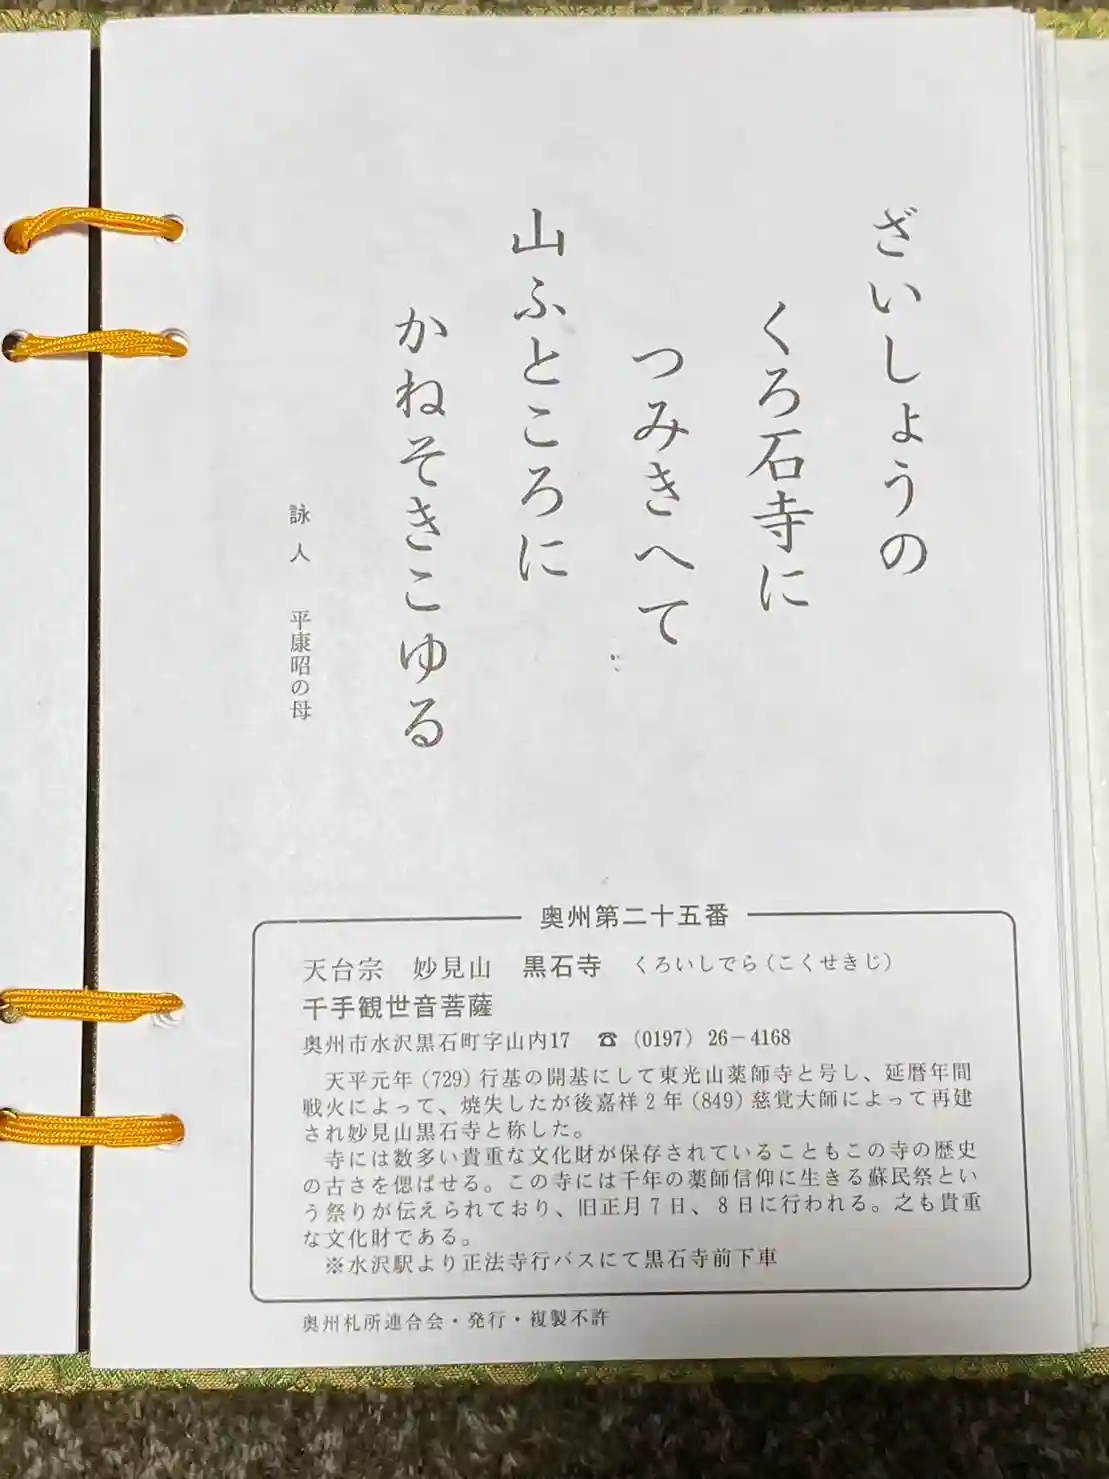 ざいしょうの
くろ石寺に
つみきへて
山ふところに
かねそきこゆる
詠人 平康昭の母
奥州第二十五番
天台宗 妙見山 黒石寺 くろいしでら(こくせきじ)
千手観世音菩薩
奥州市水沢黒石町字山内17 ☎ (0197) 26-4168
天平元年(729)行基の開基にして東光山薬師寺と号し、延暦年間
戦火によって、焼失したが後嘉祥2年(849)慈覚大師によって再建
され妙見山黒石寺と称した。
寺には数多い貴重な文化財が保存されていることもこの寺の歴史
の古さを偲ばせる。この寺には千年の薬師信仰に生きる蘇民祭とい
う祭りが伝えられており、旧正月7日、8日に行われる。之も貴重
な文化財である。
※水沢駅より正法寺行バスにて黒石寺前下車
奥州札所連合会・発行・複製不許